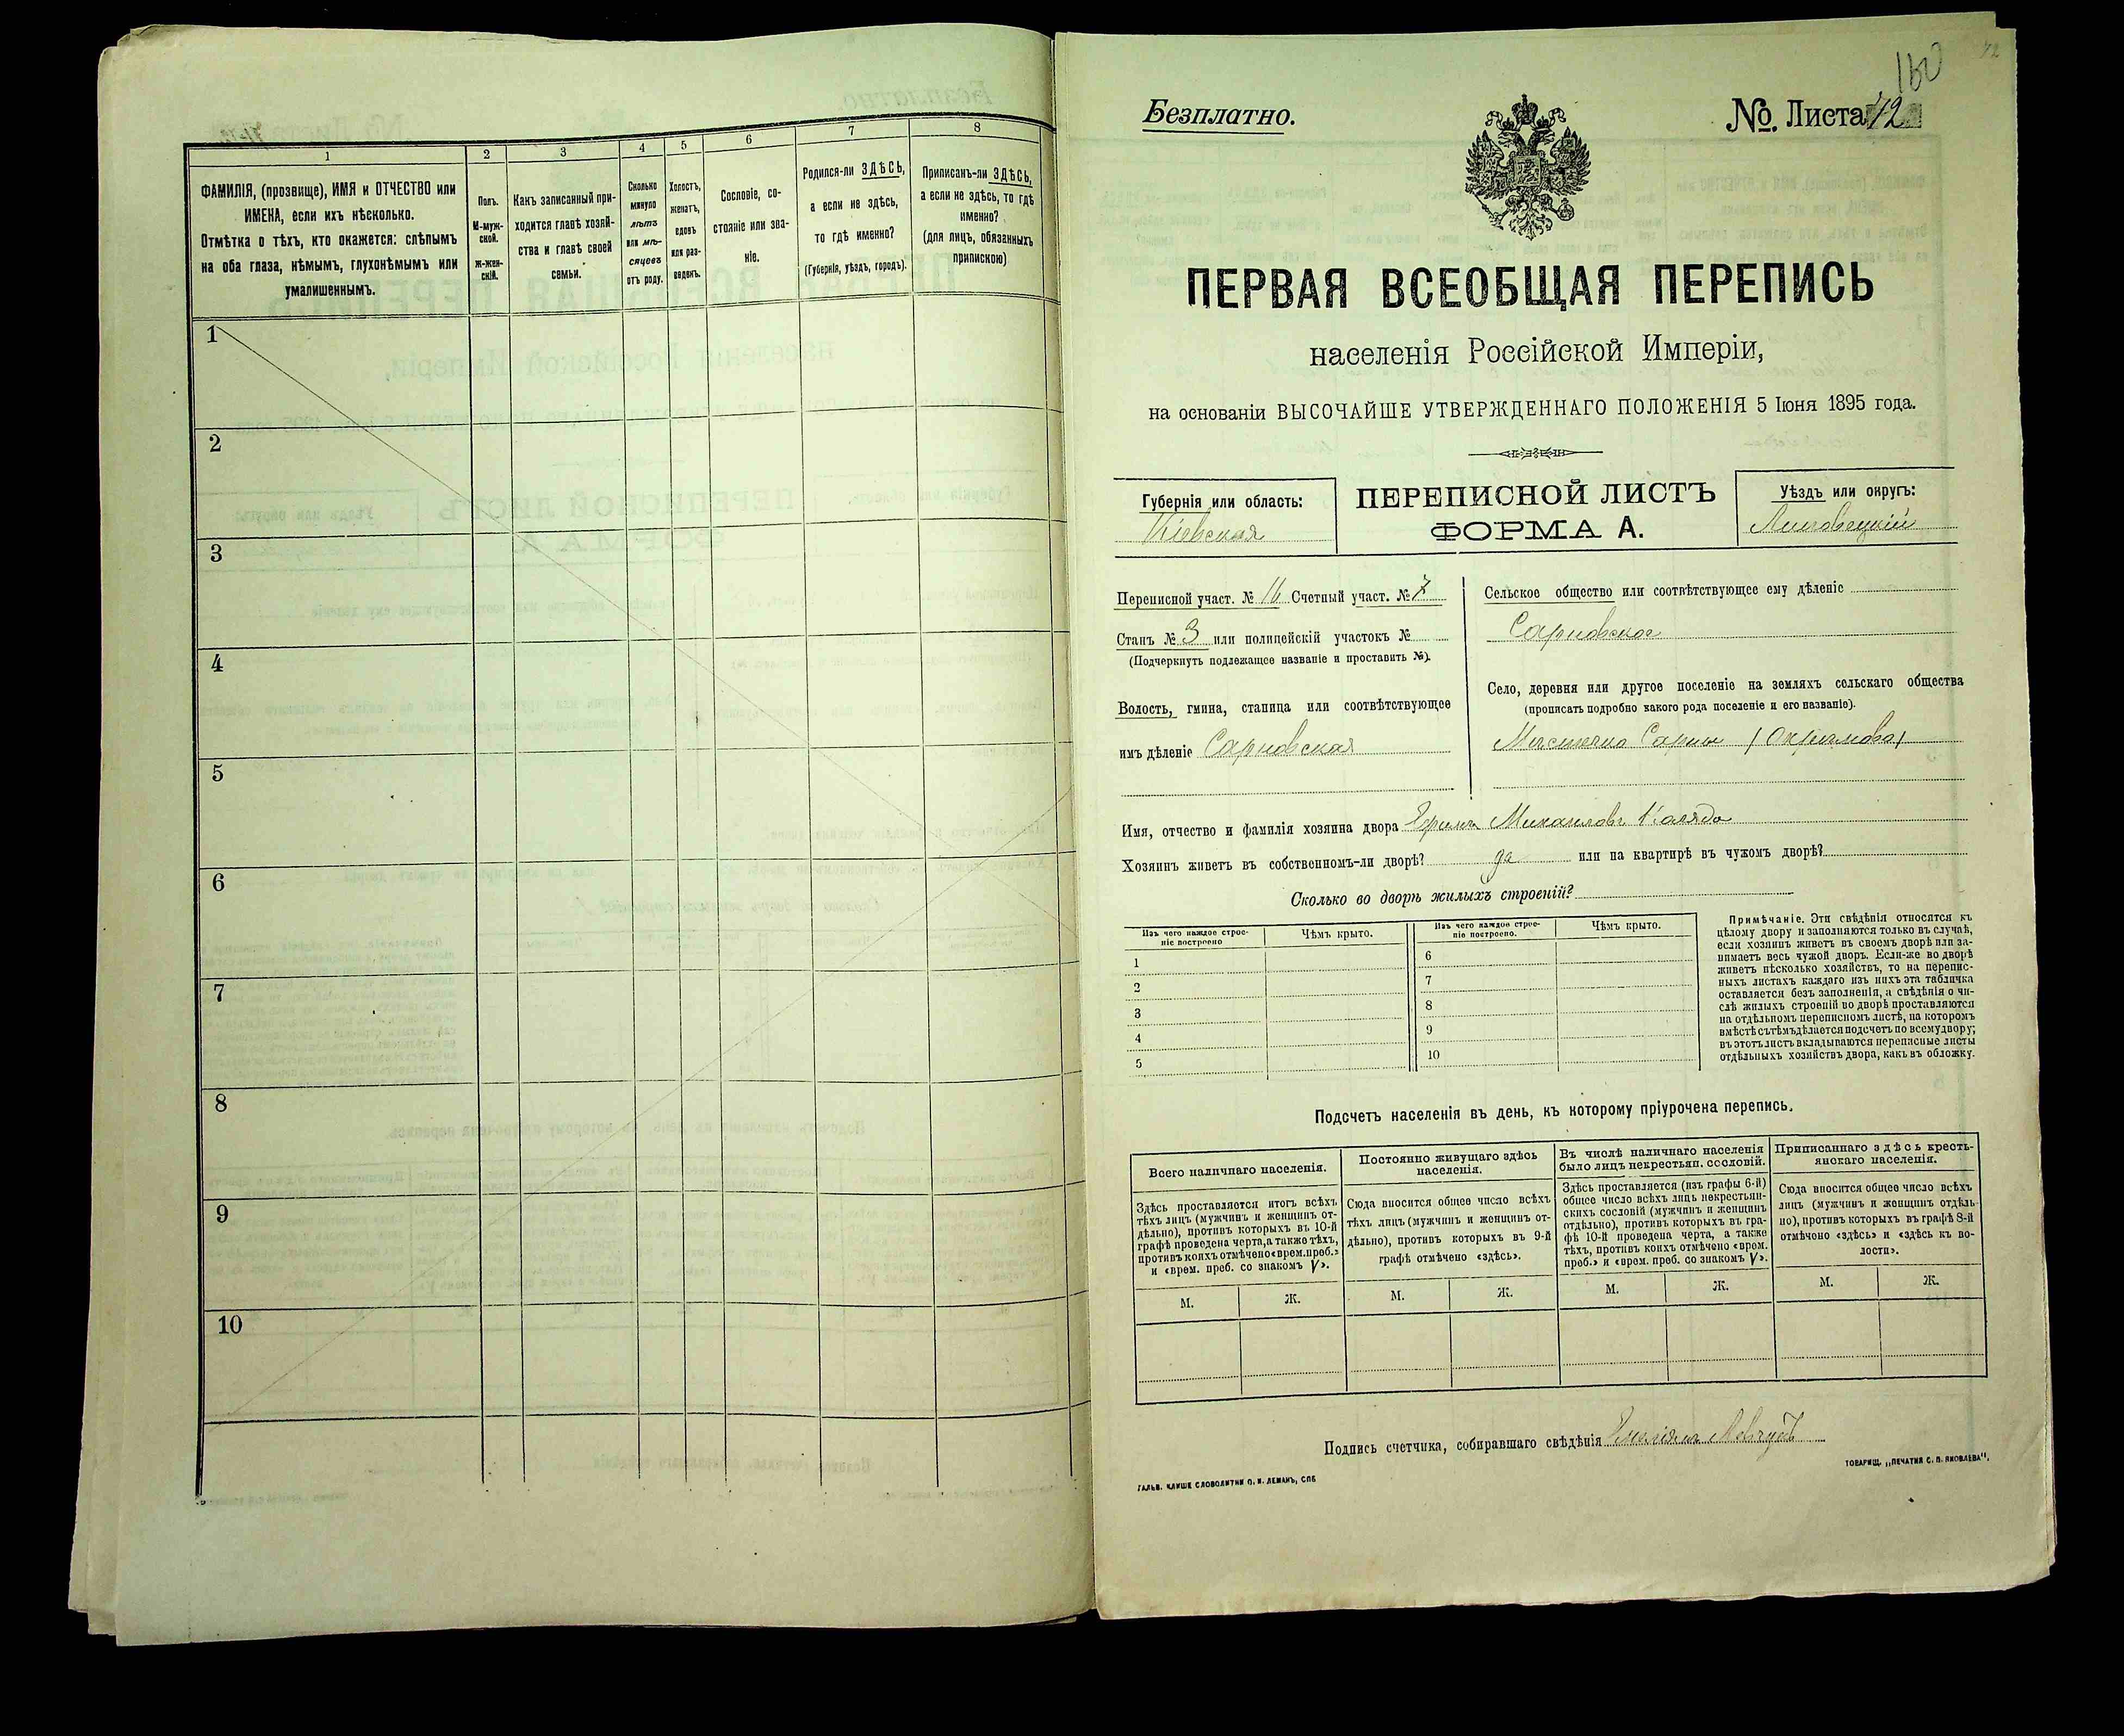 1
2
3
4
5
6
7
8
ФАМИЛІЯ, (прозвище), ИМЯ и ОТЧЕСТВО или
ИМЕНА, если ихъ нѣсколько.
Отмѣтка о тѣхъ, кто окажется: слѣпымъ
на оба глаза, нѣмымъ, глухонѣмымъ или
умалишеннымъ.
Полъ.
М-муж-
ской.
Ж-жен-
скій.
Какъ записанный при-
ходится главѣ хозяй-
ства и главѣ своей
семьи.
Сколько
минуло
лѣтъ
или мѣ-
сяцевъ
отъ роду.
Холостъ,
женатъ,
вдовъ
или раз-
веденъ.
Сословіе, со-
стояніе или зва-
ніе.
Родился-ли ЗДѢСЬ,
а если не здѣсь,
то гдѣ именно?
(Губернія, уѣздъ, городъ).
Приписанъ-ли ЗДѢСЬ,
а если не здѣсь, то гдѣ
именно?
(для лицъ, обязанныхъ
припискою)
1
2
3
4
5
6
7
8
9
10
160
72
Безплатно.
№. Листа 42
ПЕРВАЯ ВСЕОБЩАЯ ПЕРЕПИСЬ
населенія Россійской Имперіи,
на основаніи ВЫСОЧАЙШЕ УТВЕРЖДЕННАГО ПОЛОЖЕНІЯ 5 Іюня 1895 года.
Губернія или область:
Кіевская
ПЕРЕПИСНОЙ ЛИСТЪ
ФОРМА А.
Уѣздъ или округъ:
Липовецкій
Переписной участ. № 16 Счетный участ. № 7
Станъ № 3 или полицейскій участокъ №
(Подчеркнуть подлежащее названіе и проставить №).
Волость, гмина, станица или соотвѣтствующее
имъ дѣленіе Сарновская
Сельское общество или соотвѣтствующее ему дѣленіе
Сарновское
Село, деревня или другое поселеніе на земляхъ сельскаго общества
(прописать подробно какого рода поселеніе и его названіе).
Мѣстечко Сарны
Имя, отчество и фамилія хозяина двора Ефимъ Михаиловъ Каляда
Хозяинъ живетъ въ собственномъ-ли дворѣ? да или на квартирѣ въ чужомъ дворѣ?
Сколько во дворѣ жилыхъ строеній?
Изъ чего каждое строе-
ніе построено
Чѣмъ крыто.
Изъ чего каждое строе-
ніе построено.
Чѣмъ крыто.
1
2
3
4
5
6
7
8
9
10
Примѣчаніе. Эти свѣдѣнія относятся къ
цѣлому двору и заполняются только въ случаѣ,
если хозяинъ живетъ въ своемъ дворѣ или за-
нимаетъ весь чужой дворъ. Если-же во дворѣ
живетъ нѣсколько хозяйствъ, то на перепис-
ныхъ листахъ каждаго изъ нихъ эта табличка
оставляется безъ заполненія, а свѣдѣнія о чи-
слѣ жилыхъ строеній во дворѣ проставляются
на отдѣльномъ переписномъ листѣ, на которомъ
вмѣстѣ съ тѣмъ дѣлается подсчетъ по всему двору;
въ этотъ листъ вкладываются переписные листы
отдѣльныхъ хозяйствъ двора, какъ въ обложку.
Подсчетъ населенія въ день, къ которому пріурочена перепись.
Всего наличнаго населенія.
Здѣсь проставляется итогъ всѣхъ
тѣхъ лицъ (мужчинъ и женщинъ от-
дѣльно), противъ которыхъ въ 10-й
графѣ проведена черта, а также тѣхъ,
противъ коихъ отмѣчено «врем. преб.»
и «врем. преб. со знакомъ V».
М.
Ж.
Постоянно живущаго здѣсь
населенія.
Сюда вносится общее число всѣхъ
тѣхъ лицъ (мужчинъ и женщинъ от-
дѣльно), противъ которыхъ въ 9-й
графѣ отмѣчено «здѣсь».
М.
Ж.
Въ числѣ наличнаго населенія
было лицъ некрестьян. сословій.
Здѣсь проставляется (изъ графы 6-й)
общее число всѣхъ лицъ некрестьян-
скихъ сословій (мужчинъ и женщинъ
отдѣльно), противъ которыхъ въ гра-
фѣ 10-й проведена черта, а также
тѣхъ, противъ коихъ отмѣчено «врем.
преб.» и «врем. преб. со знакомъ V».
М.
Ж.
Приписаннаго здѣсь кресть-
янскаго населенія.
Сюда вносится общее число всѣхъ
лицъ (мужчинъ и женщинъ отдѣль-
но), противъ которыхъ въ графѣ 8-й
отмѣчено «здѣсь» и «здѣсь къ во-
лости».
М.
Ж.
Подпись счетчика, собиравшаго свѣдѣнія
ГАЛЬВ. КЛИШЕ СЛОВОЛИТНИ О. И. ЛЕМАНЪ, СПБ
ТОВАРИЩ. „ПЕЧАТНЯ С. П. ЯКОВЛЕВА“.